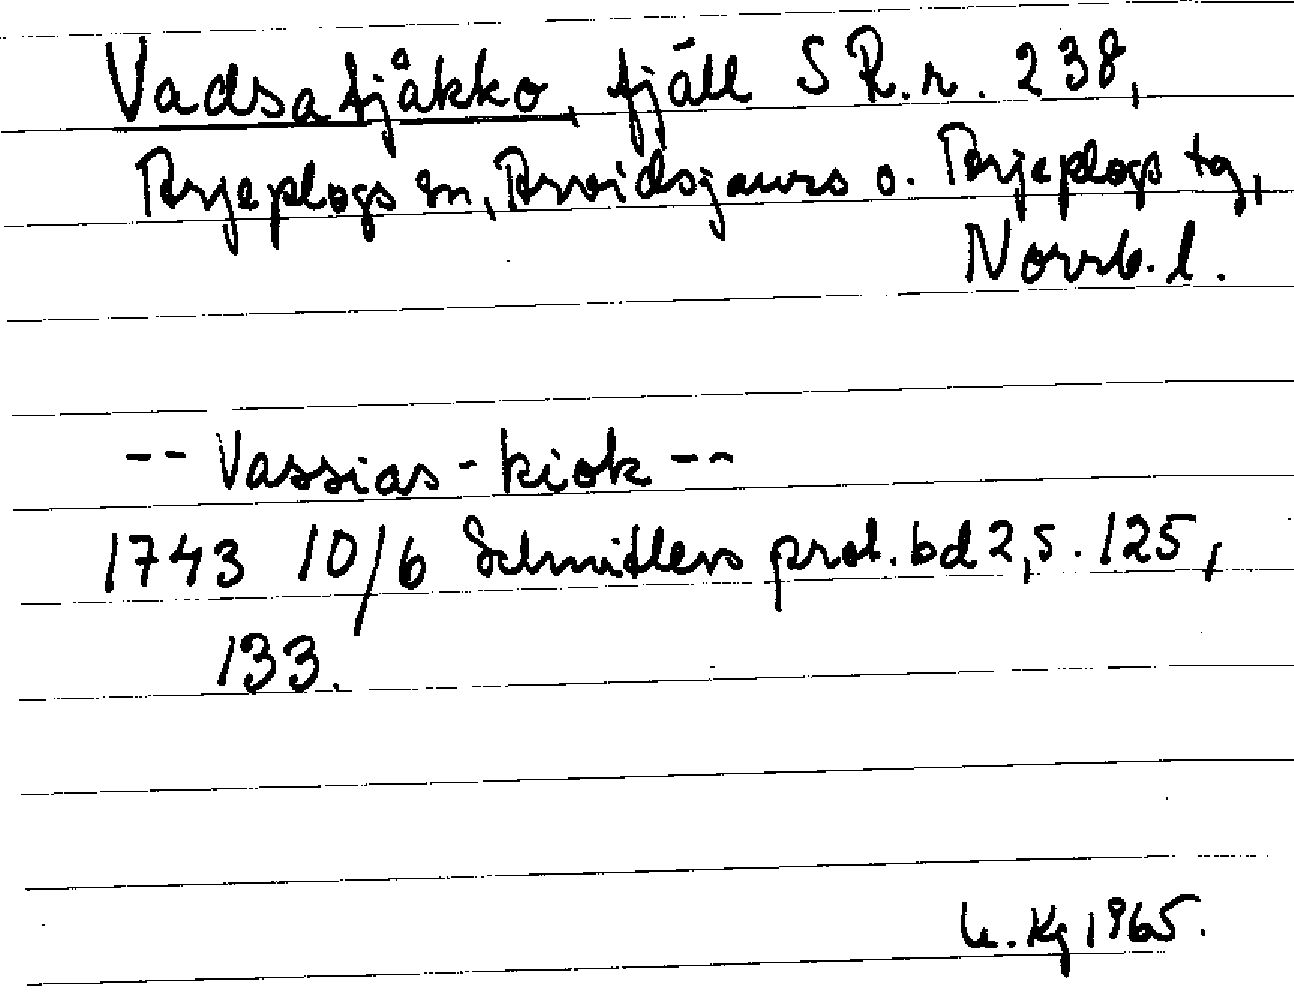 Vadsatjåkko, fjäll S R.r. 238,
Arjeplogs sn, Arvidsjaurs o. Arjeplogs tg,
Norrb. l.
-- Vassias-kiok --
1743 10/6 Schnitlers prot. bd 2, s. 125,
133.
U. Kg 1965.